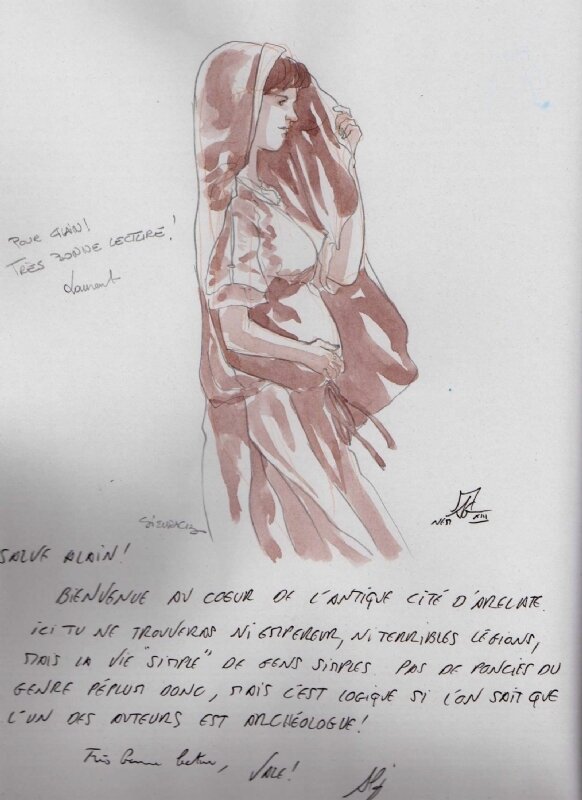 Pour Alain!
Très bonne lecture!
Laurent
SIEURAC
SALVE ALAIN!
BIENVENUE AU COEUR DE L'ANTIQUE CITÉ D'ARELATE.
ICI TU NE TROUVERAS NI EMPEREUR, NI TERRIBLES LÉGIONS,
MAIS LA VIE "SIMPLE" DE GENS SIMPLES. PAS DE PONCIFS DU
GENRE PÉPLUM DONC, MAIS C'EST LOGIQUE SI L'ON SAIT QUE
L'UN DES AUTEURS EST ARCHÉOLOGUE!
Très bonne lecture, VALE!